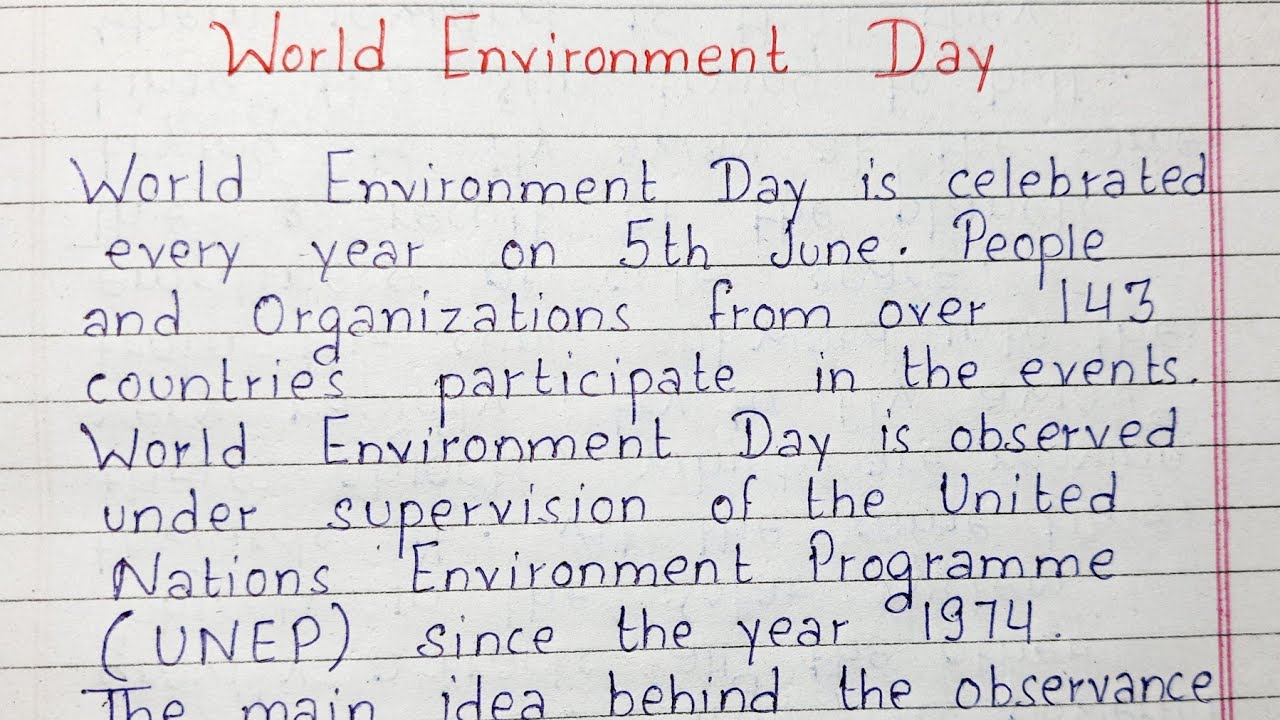 World Environment Day
World Environment Day is celebrated
every year on 5th June. People
and Organizations from over 143
countries participate in the events.
World Environment Day is observed
under supervision of the United
Nations Environment Programme
(UNEP) since the year 1974.
The main idea behind the observance